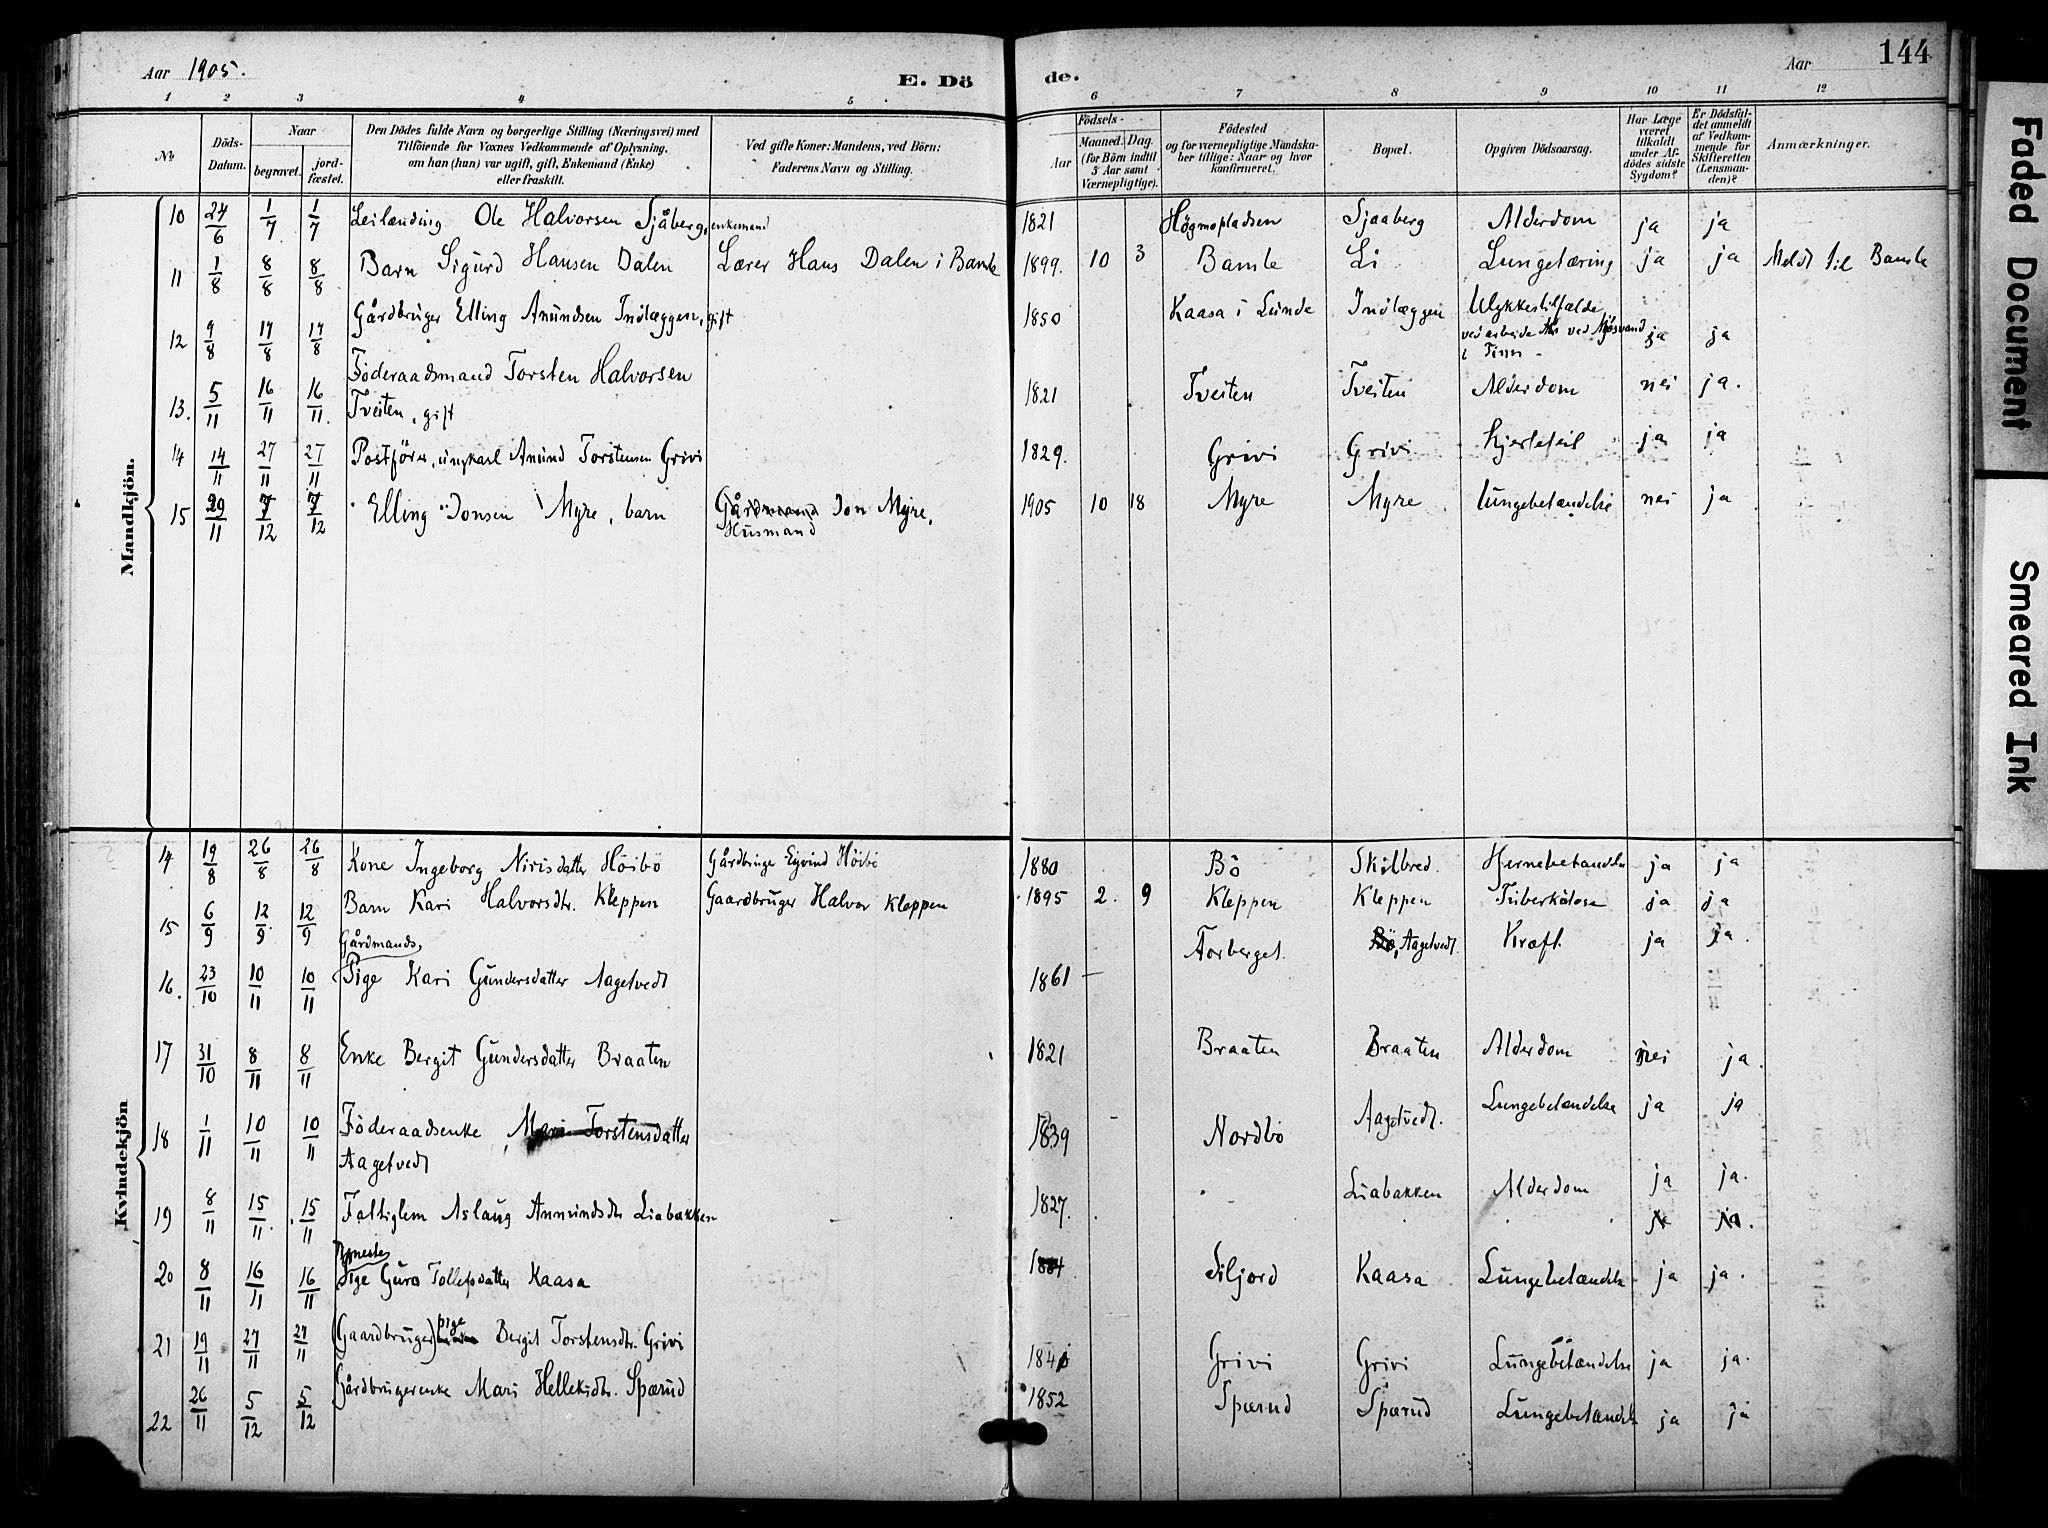 Aar 1905.
E. Dö
de.
Aar
144
1 2 3 4 5 6 7 8 9 10 11 12
No
Döds-Datum.
Naar
begravet.
jord-fæstet.
Den Dödes fulde Navn og borgerlige Stilling (Næringsvei) med
Tilföiende for Voxnes Vedkommende af Oplysning,
om han (hun) var ugift, gift, Enkemand (Enke)
eller fraskilt.
Ved gifte Koner: Mandens, ved Börn:
Faderens Navn og Stilling.
Födsels-
Aar
Maaned. Dag.
(for Börn indtil
5 Aar samt
Værnepligtige).
Födested
og for værnepligtige Mandska-
ber tillige: Naar og hvor
konfirmeret.
Bopæl.
Opgiven Dödsaarsag.
Har Læge
været
tilkaldt
under Af-
dödes sidste
Sygdom?
Er Dödsfal-
det anmeldt
af Vedkom-
mende for
Skifteretten
(Lensman-
den)?
Anmærkninger.
Mandkjön.
10 24/6 1/7 1/7 Leilænding Ole Halvorsen Sjåberg, enkemand 1821 Högmopladsen Sjaaberg Alderdom ja ja
11 1/8 8/8 8/8 Barn Sigurd Hansen Dalen Lærer Hans Dalen i Bamle 1899. 10 3 Bamle Li Lungetæring ja ja Meldt til Bamle
12 9/8 17/8 17/8 Gårdbruger Elling Anundsen Indlæggen, gift 1850 Kaasa i Lunde Indlæggen Ulykkestilfælde
ved arbeide ved Mjøsvand ja ja
i Tinn -
13. 5/11 16/11 16/11. Föderaadsmand Torsten Halvorsen
Tveiten, gift 1821 Tveiten Tveiten Alderdom nei ja.
14 14/11 27/11 27/11 Postförer, ungkarl Anund Torstensen Grivi 1829. Grivi Grivi Hjertefeil ja ja
15 29/11 7/12 7/12 Elling Jonsen Myre, barn Gårdmand Jon Myre,
Husmand 1905 10 18 Myre Myre Lungebetændelse nei ja
Kvindekjön
14 19/8 26/8 26/8 Kone Ingeborg Nirisdatter Höibö Gårdbruger Eyvind Höibö 1880 Bö Skilbred Hjernebetændelse ja ja
15 6/9 12/9 12/9 Barn Kari Halvorsdtr. Kleppen Gaardbruger Halvor Kleppen 1895 2. 9 Kleppen Kleppen Tuberkulose ja ja
Gårdmands
16. 23/10 10/11 10/11 Pige Kari Gundersdatter Aagetvedt 1861 Torberget. Bö, Aagetvedt. Kræft ja ja.
17 31/10 8/11 8/11 Enke Bergit Gundersdatter Braaten 1821 Braaten Braaten Alderdom nei ja.
18 1/11 10/11 10/11 Föderaadsenke, Mari Torstensdatter
Aagetvedt 1839 Nordbö Aagetvedt. Lungebetændelse ja ja
19 8/11 15/11 15/11 Fattiglem Aslaug Anmundsdtr Liabakken 1827. Liabakken Alderdom ja ja.
ja ja.
Tjeneste
20 8/11 16/11 16/11 Pige Guro Tollefsdatter Kaasa 1884 Siljord Kaasa Lungebetændelse ja ja.
21 19/11 27/11 27/11 (Gaardbruger) pige Bergit Torstensdtr. Grivi 1840 Grivi Grivi Lungebetændelse ja ja.
22 26/11 5/12 5/12 Gårdbrugerenke Mari Helleksdtr. Spærud 1852 Spærud Spærud Lungebetændelse ja ja
Faded Document
Smeared Ink